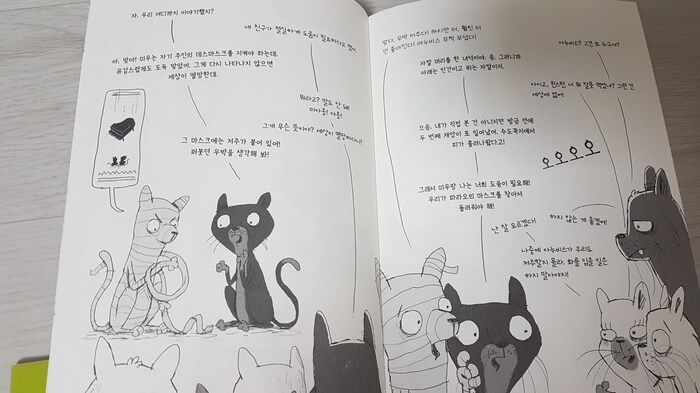 자. 우리 어디까지 이야기했지?
네 친구가 절실하게 도움이 필요하다고 했어.
아, 맞아! 미우는 자기 주인의 데스마스크를 지켜야 하는데,
유감스럽게도 도둑 맞았어. 그게 다시 나타나지 않으면
세상이 멸망한대.
뭐라고? 말도 안 돼!
그게 무슨 뜻이야? 세상이 멸망하다니?
그 마스크에는 저주가 붙어 있어!
퍼붓던 우박을 생각해 봐!
맞다. 우박 저주다! 하지만 더, 훨씬 더
자칼 머리를 한 녀석이야. 음, 그러니까
아래는 인간이고 위는 자칼이지.
아누비스? 그건 또 누구야?
아이고, 윈스턴 너 뭐 잘못 먹었냐? 그런 건
세상에 없어!
으음, 내가 직접 본 건 아니지만 방금 전에
두 번째 재앙이 또 일어났어. 수도꼭지에서
피가 흘러나왔다고!
그래서 미우랑 나는 너희 도움이 필요해!
우리가 파라오의 마스크를 찾아서
돌려줘야 해!
난 잘 모르겠다!
하지 않는 게 좋겠어!
나중에 아누비스가 우리도
저주할지 몰라. 화를 입을 일은
하지 말아야지!